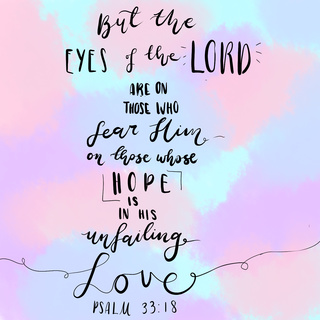 But the
EYES of the LORD
ARE ON
THOSE WHO
fear Him
on those whose
HOPE
IS
IN HIS
unfailing
Love
PSALM 33:18